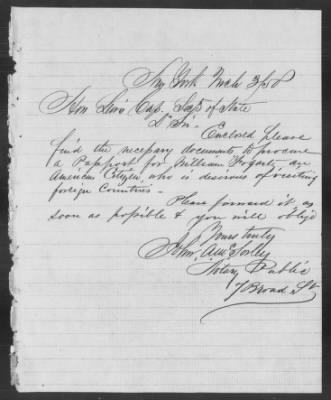 New York March 3/58
Hon Lewis Cass Secy of State
Dr Sir
Enclosed please
find the necessary documents to procure
a Passport for William Fogarty an
American Citizen, who is desirous of visiting
foreign Countries —
Please forward it as
soon as possible & you will oblige
Yours truly
John A McSorley
Notary Public
7 Broad St